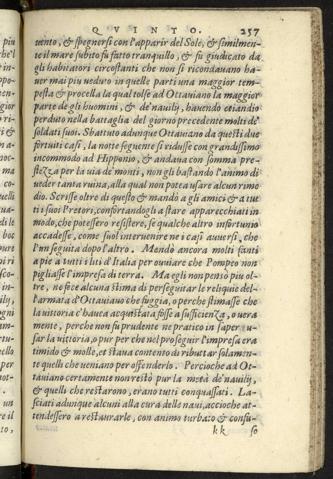 QVINTO. 257
uento, & spegnersi con l'apparir del Sole, & similmen-
te il mare subito fu fatto tranquillo, & fu giudicato da
gli habitatori circostanti che non si ricordauano ha-
uer mai piu ueduto in quelle parti una maggior tem-
pesta & procella la qual tolse ad Ottauiano la maggior
parte de gli huomini, & de'nauilij, hauendo etiandio
perduto nella battaglia del giorno precedente molti de'
soldati suoi. Sbatuto adunque Ottauiano da questi due
fortuiti casi, la notte seguente si ridusse con grandissimo
incommodo ad Hipponio, & andaua con somma pre-
stezza per la uia de'monti, non gli bastando l'animo di
ueder tanta ruina, alla qual non potea usare alcun rime
dio. Scrisse oltre di questo & mandò a gli amici & a tut
ti i suoi Pretori, confortandogli a stare apparecchiati in
modo, che potessero resistere, se qualche altro infortunio
accadesse, come suol interuenire ne i casi auuersi, che
l'un seguita dopo l'altro. Mandò ancora molti fanti
a pie a tutti i liti d'Italia per ouuiare che Pompeo non
pigliasse l'impresa di terra. Ma egli non pensò piu ol-
tre, ne fece alcuna stima di perseguitar le reliquie del-
l'armata d'Ottauiano che fuggia, o perche stimasse che
la uittoria c'hauea acquistata fosse a sufficienza, o uera
mente, perche non fu prudente ne pratico in saper u-
sar la uittoria, o pur per che nel proseguir l'impresa era
timido & molle, et staua contento di ributtar solamen-
te quelli che ueniano per offenderlo. Percioche ad Ot-
tauiano certamente non restò pur la metà de'nauilij,
& quelli che restarono, erano tutti conquassati. La-
sciati adunque alcuni alla cura delle naui, accioche at-
tendessero a restaurarle, con animo turbato & confu-
kk so